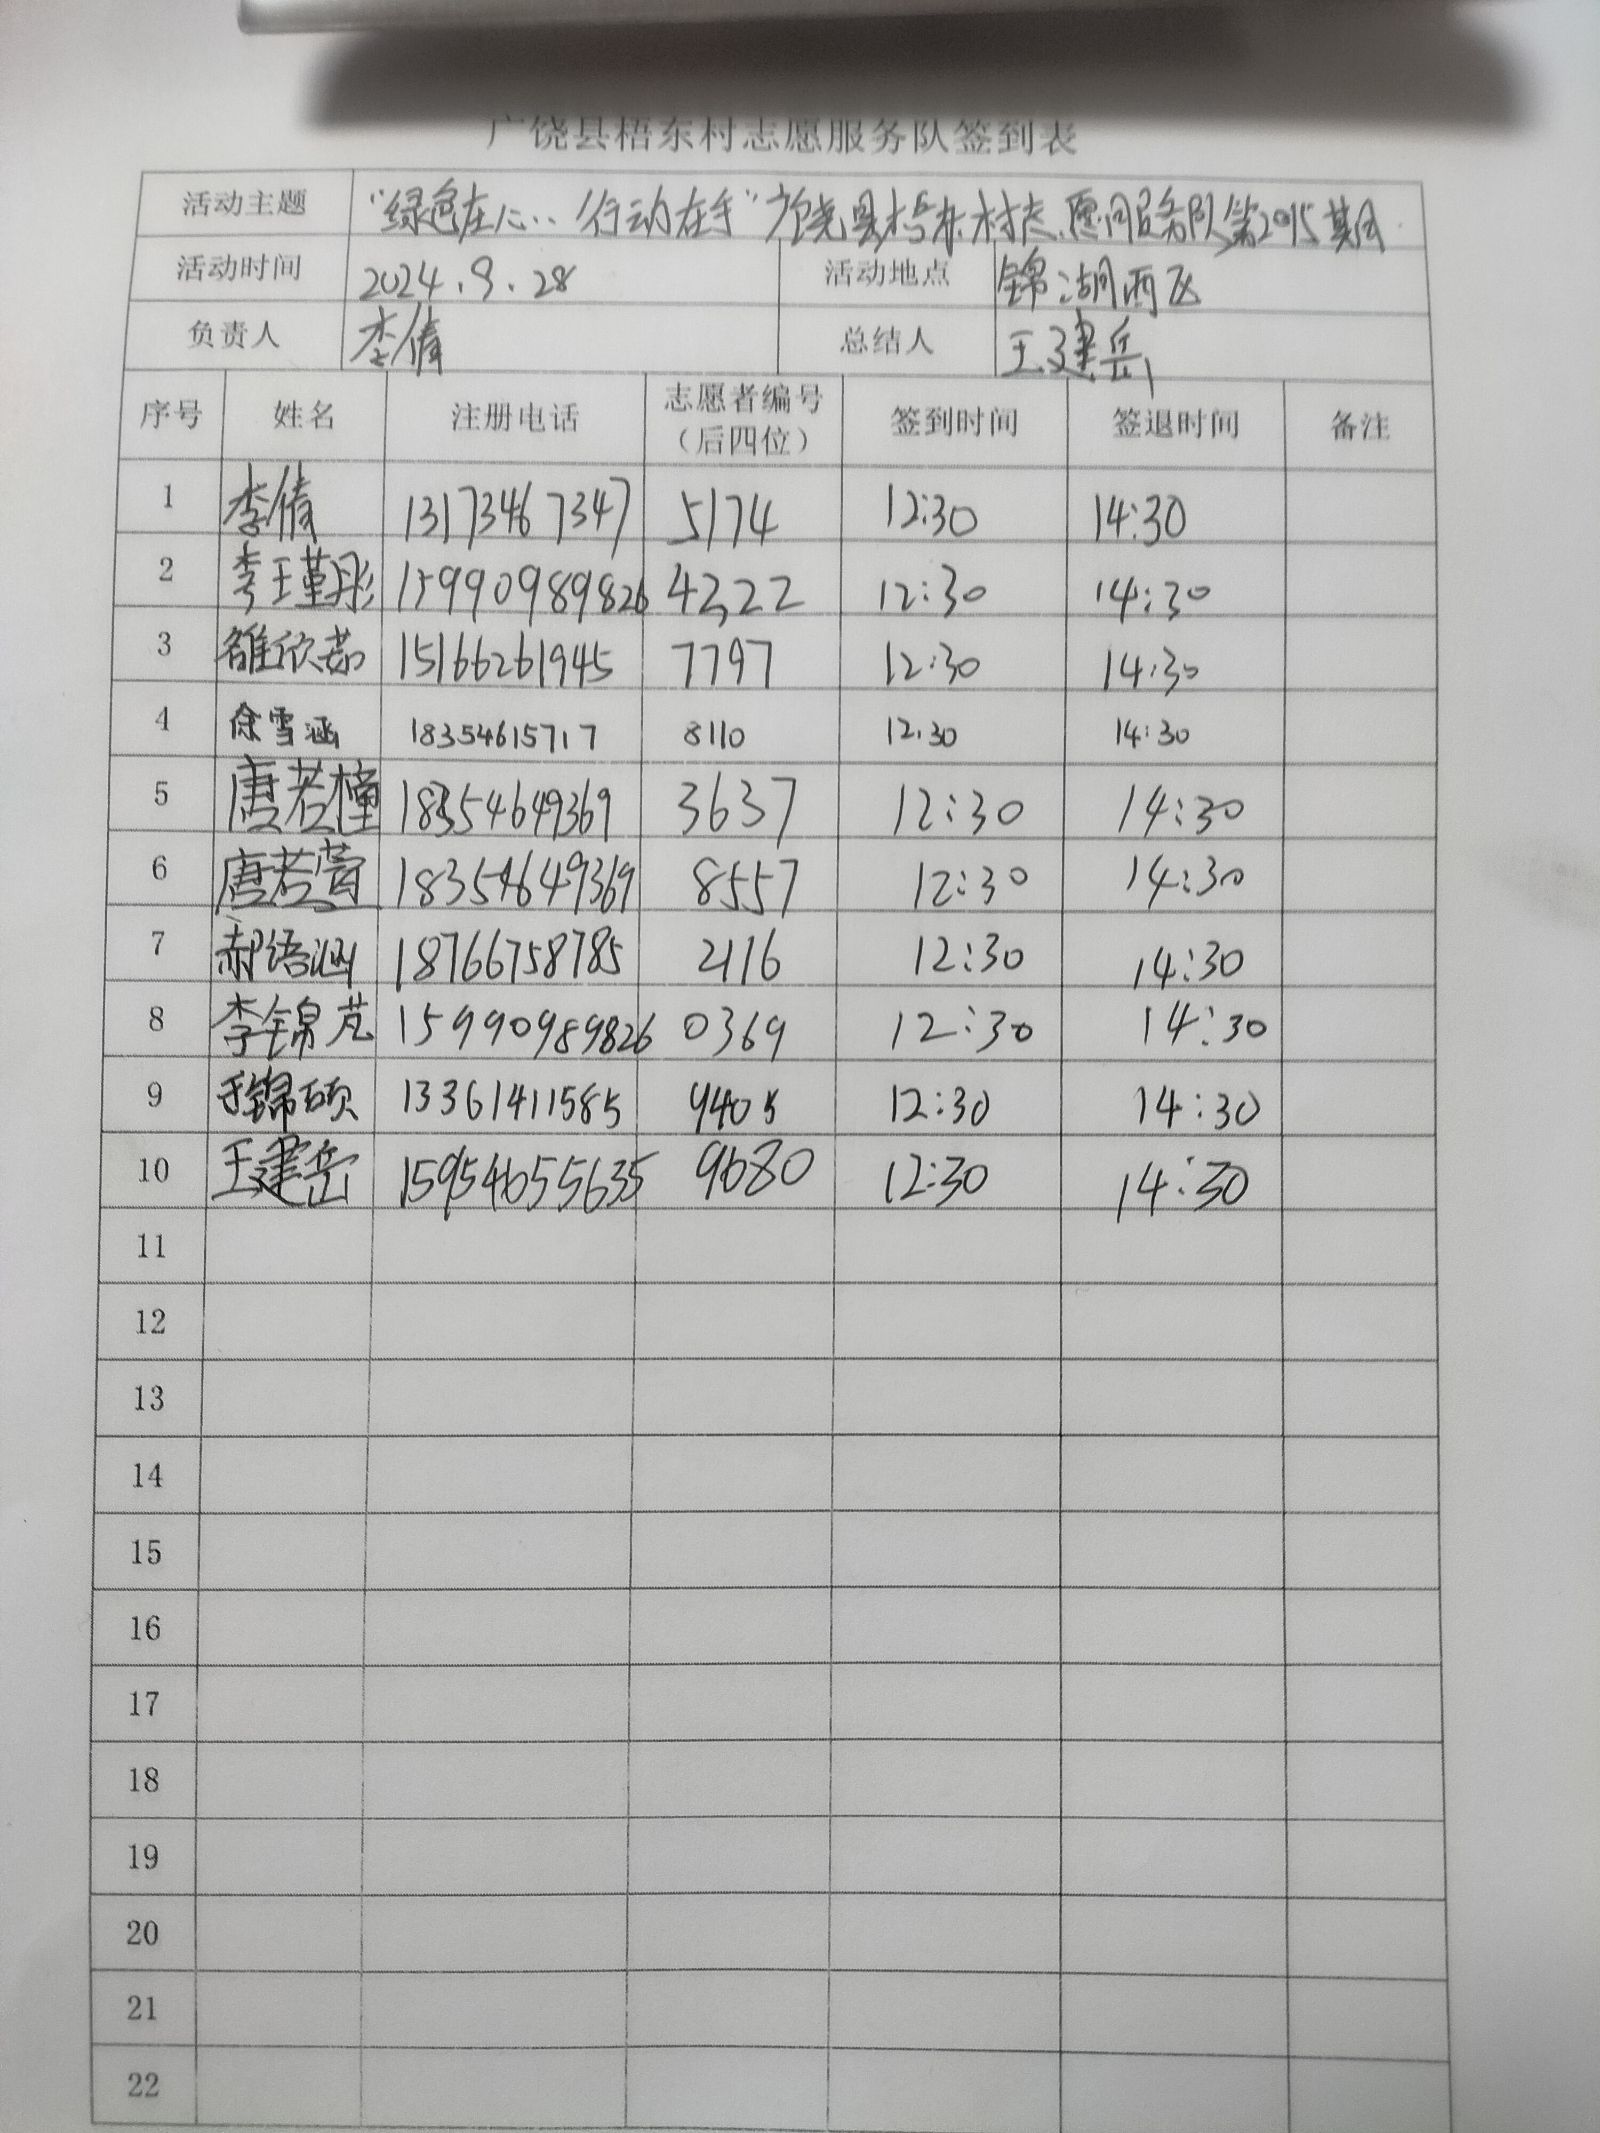 广饶县梧东村志愿服务队签到表
活动主题 “绿色在心… 行动在手”广饶县梧东村志愿服务队第2015期活
活动时间 2024.9.28 活动地点 锦湖西区
负责人 李倩 总结人 王建岳
序号 姓名 注册电话 志愿者编号（后四位） 签到时间 签退时间 备注
1 李倩 13173467347 5174 12:30 14:30
2 李王堇彤 15990989826 4222 12:30 14:30
3 雒欣茹 15166261945 7797 12:30 14:30
4 徐雪涵 18354615717 8110 12:30 14:30
5 唐若橦 18354649369 3637 12:30 14:30
6 唐若萱 18354649369 8557 12:30 14:30
7 郝语涵 18766758785 2116 12:30 14:30
8 李锦芃 15990989826 0369 12:30 14:30
9 于锦硕 13361411585 9405 12:30 14:30
10 王建岳 15954655635 9680 12:30 14:30
11
12
13
14
15
16
17
18
19
20
21
22